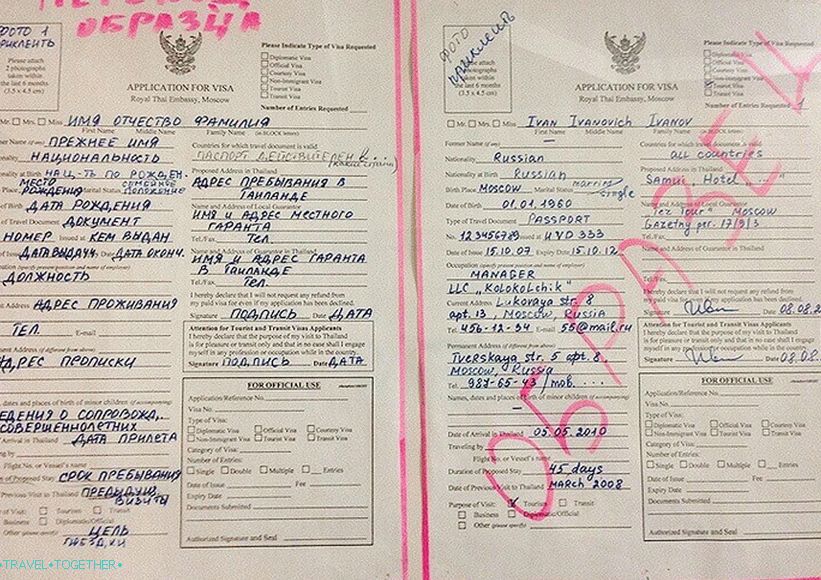 ОБРАЗЦА
ФОТО 1
Please attach
2 photographs
taken within
the last 6 months
(3.5 x 4.5 cm)
APPLICATION FOR VISA
Royal Thai Embassy, Moscow
Please Indicate Type of Visa Requested
Diplomatic Visa
Official Visa
Courtesy Visa
Non-Immigrant Visa
Tourist Visa
Transit Visa
Number of Entries Requested
Mr. Mrs. Miss ИМЯ ОТЧЕСТВО ФАМИЛИЯ
First Name Middle Name Family Name (in BLOCK letters)
ПРЕЖНЕЕ ИМЯ
НАЦИОНАЛЬНОСТЬ
НАЦ-ТЬ ПО РОЖДЕН.
МЕСТО РОЖДЕНИЯ
СЕМЕЙНОЕ ПОЛОЖЕНИЕ
ДАТА РОЖДЕНИЯ
of Travel Document ДОКУМЕНТ
НОМЕР Issued at КЕМ ВЫДАН
ДАТА ВЫДАЧИ ДАТА ОКОНЧ.
ДОЛЖНОСТЬ
АДРЕС ПРОЖИВАНИЯ
ТЕЛ. E-mail
АДРЕС ПРОПИСКИ
dates and places of birth of minor children (if accompanying)
of Arrival in Thailand ДАТА ПРИЛЕТА
Flight No. or Vessel's name
СРОК ПРЕБЫВАНИЯ
Previous Visit to Thailand ПРЕДЫДУЩ. ВИЗИТЫ
Tourism Transit
Business Diplomatic/Official
Other (please specify) ЦЕЛЬ ПОЕЗДКИ
Countries for which travel document is valid
ПАСПОРТ ДЕЙСТВИТЕЛЕН В
Proposed Address in Thailand
АДРЕС ПРЕБЫВАНИЯ В
ТАИЛАНДЕ
Name and Address of Local Guarantor
ИМЯ И АДРЕС МЕСТНОГО
ГАРАНТА
Tel./Fax. ТЕЛ.
Name and Address of Guarantor in Thailand
ИМЯ И АДРЕС ГАРАНТА
В ТАИЛАНДЕ
Tel./Fax. ТЕЛ.
I hereby declare that I will not request any refund from
my paid visa fee even if my application has been declined.
Signature ПОДПИСЬ Date ДАТА
Attention for Tourist and Transit Visas Applicants
I hereby declare that the purpose of my visit to Thailand
is for pleasure or transit only and that in no case shall I engage
myself in any profession or occupation while in the country.
Signature ПОДПИСЬ Date ДАТА
FOR OFFICIAL USE
Application/Reference No.
Visa No.
Type of Visa:
Diplomatic Visa Official Visa Courtesy Visa
Non-Immigrant Visa Tourist Visa Transit Visa
Category of Visa:
Number of Entries:
Single Double Multiple Entries
Date of Issue Fee
Expiry Date
Documents Submitted
Authorized Signature and Seal
ФОТО
APPLICATION FOR VISA
Royal Thai Embassy, Moscow
Please Indicate Type of Visa Requested
Diplomatic Visa
Official Visa
Courtesy Visa
Non-Immigrant Visa
Tourist Visa
Transit Visa
Number of Entries Requested 1
Mr. Mrs. Miss IVAN IVANOVICH IVANOV
First Name Middle Name Family Name (in BLOCK letters)
Former Name (if any) —
Nationality Russian
Nationality at Birth Russian
Birth Place MOSCOW Marital Status single
Date of Birth 01.01.1960
Type of Travel Document PASSPORT
No. 123456789 Issued at UVD 333
Date of Issue 15.10.07 Expiry Date 15.10.12
Occupation (specify present position and name of employer)
MANAGER
LLC „Kolokolchik"
Current Address Lukovaya str. 8
apt. 13, Moscow, Russia
Tel. 456-12-34 E-mail 55@mail.ru
Permanent Address (if different from above)
Tverskaya str. 5 apt. 8,
Moscow, Russia
Tel. 987-65-43 / mob. ...
Names, dates and places of birth of minor children (if accompanying)
—
Date of Arrival in Thailand 05.05.2010
Traveling by
Flight No. or Vessel's name
Duration of Proposed Stay 45 days
Date of Previous Visit to Thailand MARCH 2008
Purpose of Visit: Tourism Transit
Business Diplomatic/Official
Other (please specify)
Countries for which travel document is valid
all countries
Proposed Address in Thailand
Samui Hotel „ ... "
Name and Address of Local Guarantor
„Tez Tour" Moscow
Gazetny per. 17/9/3
Tel./Fax.
Name and Address of Guarantor in Thailand
Tel./Fax.
I hereby declare that I will not request any refund from
my paid visa fee even if my application has been declined.
Signature Date 08.08.
Attention for Tourist and Transit Visas Applicants
I hereby declare that the purpose of my visit to Thailand
is for pleasure or transit only and that in no case shall I engage
myself in any profession or occupation while in the country.
Signature Date 08.08.
FOR OFFICIAL USE
Application/Reference No.
Visa No.
Type of Visa:
Diplomatic Visa Official Visa Courtesy Visa
Non-Immigrant Visa Tourist Visa Transit Visa
Category of Visa:
Number of Entries:
Single Double Multiple Entries
Date of Issue Fee
Expiry Date
Documents Submitted
Authorized Signature and Seal
ОБРАЗЕЦ
•TRAVEL•TOGETHER•